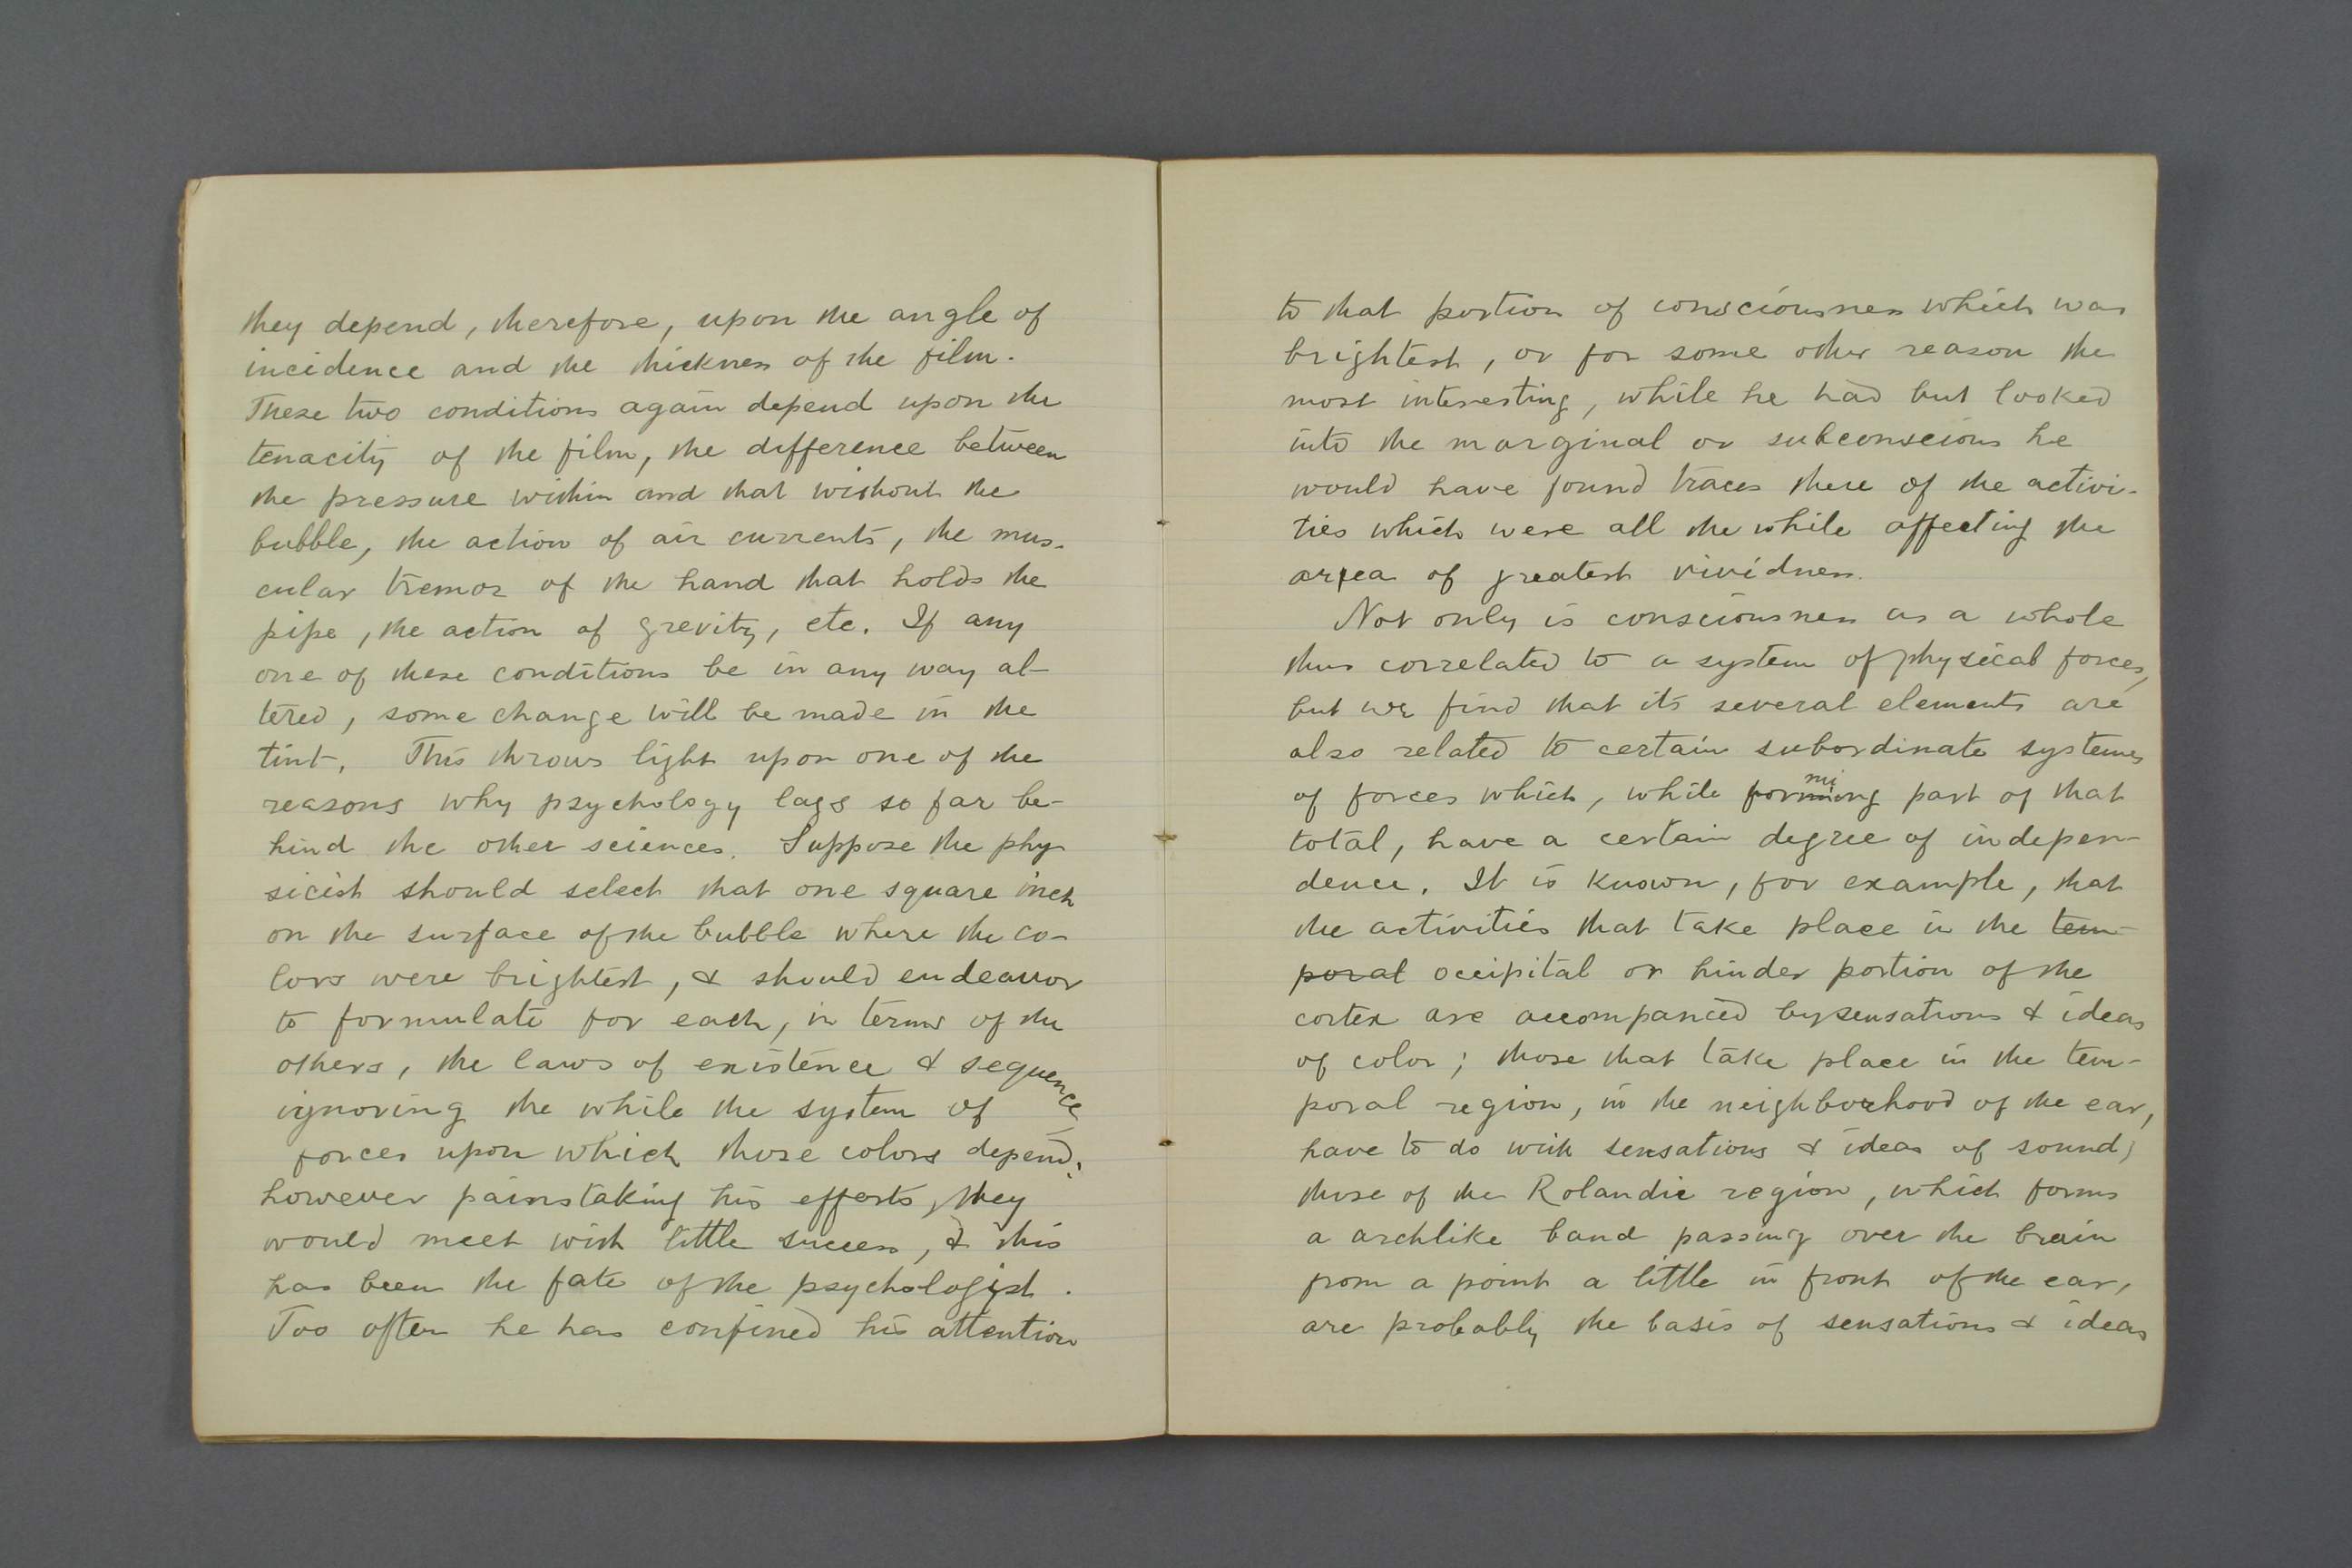 they depend, therefore, upon the angle of
incidence and the thickness of the film.
These two conditions again depend upon the
tenacity of the film, the difference between
the pressure within and that without the
bubble, the action of air currents, the mus-
cular tremor of the hand that holds the
pipe, the action of grevity, etc. If any
one of these conditions be in any way al-
tered, some change will be made in the
tint. This throws light upon one of the
reasons why psychology lags so far be-
hind the other sciences. Suppose the phy-
sicist should select that one square inch
on the surface of the bubble where the co-
lors were brightest, & should endeavor
to formulate for each, in terms of the
others, the laws of existence & sequence,
ignoring the while the system of
forces upon which those colors depend;
however painstaking his efforts, they
would meet with little success, & this
has been the fate of the psychologist.
Too often he has confined his attention
to that portion of consciousness which was
brightest, or for some other reason the
most interesting, while he had but looked
into the marginal or subconscious he
would have found traces there of the activi-
ties which were all the while affecting the
area of greatest vividness.
Not only is consciousness as a whole
thus correlated to a system of physical forces,
but we find that its several elements are
also related to certain subordinate systems
of forces which, while forming part of that
total, have a certain degree of indepen-
dence. It is known, for example, that
the activities that take place in the tem-
poral occipital or hinder portion of the
cortex are accompanied by sensations & ideas
of color; those that take place in the tem-
poral region, in the neighborhood of the ear,
have to do with sensations & ideas of sound;
those of the Rolandic region, which forms
a archlike band passing over the brain
from a point a little in front of the ear,
are probably the basis of sensations & ideas